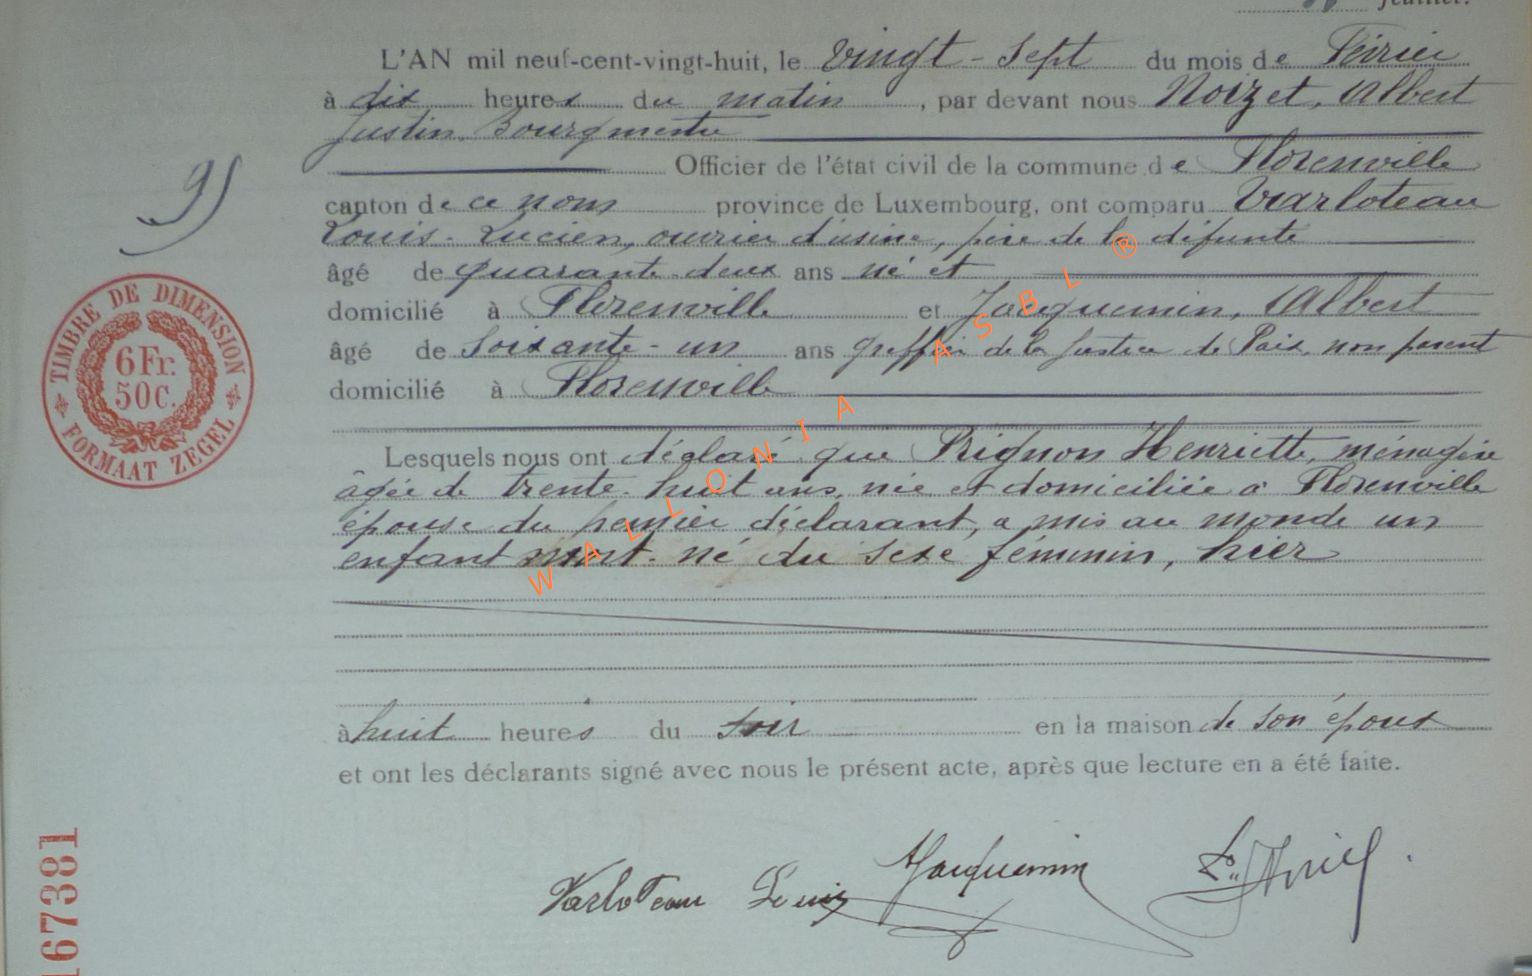 feuillet.
L'AN mil neuf-cent-vingt-huit, le vingt-sept du mois de Février
à dix heures du matin, par devant nous Noizet, Albert
Justin Bourgmestre
Officier de l'état civil de la commune de Florenville
canton de ce nom province de Luxembourg, ont comparu Varloteau
Louis-Lucien, ouvrier d'usine, père de la défunte
âgé de quarante-deux ans né et
domicilié à Florenville et Jacquemin, Albert
âgé de soixante-un ans greffier de la Justice de Paix, non parent
domicilié à Florenville
Lesquels nous ont déclaré que Prignon Henriette, ménagère
âgée de trente-huit ans, née et domiciliée à Florenville
épouse du premier déclarant, a mis au monde un
enfant mort-né du sexe féminin, hier
à huit heures du soir en la maison de son époux
et ont les déclarants signé avec nous le présent acte, après que lecture en a été faite.
Varloteau Louis AJacquemin
TIMBRE DE DIMENSION
6Fr.
50C.
FORMAAT ZEGEL
167381
WALLONIA ASBL ®